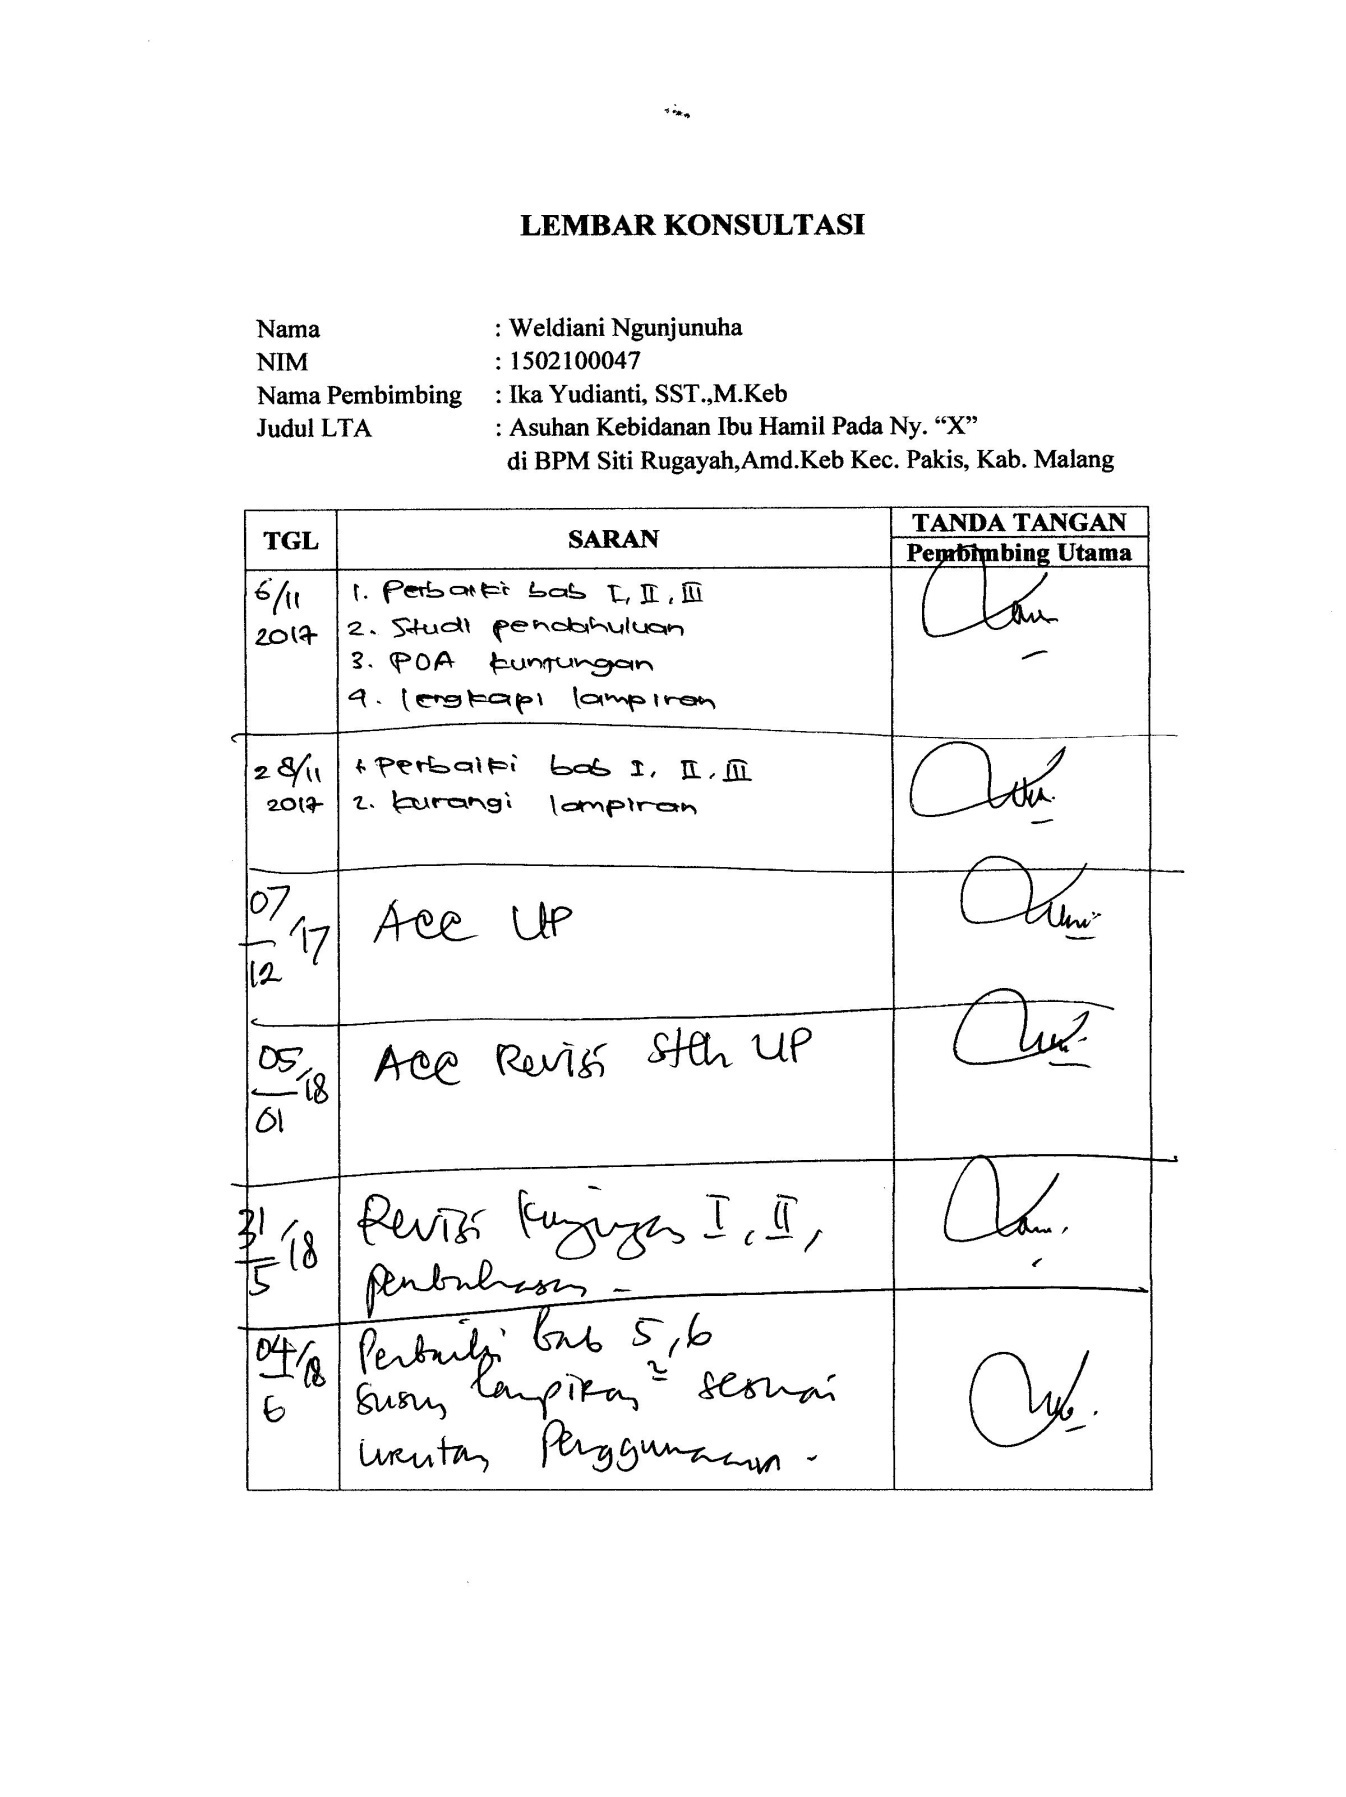 LEMBAR KONSULTASI
Nama : Weldiani Ngunjunuha
NIM : 1502100047
Nama Pembimbing : Ika Yudianti, SST.,M.Keb
Judul LTA : Asuhan Kebidanan Ibu Hamil Pada Ny. “X”
di BPM Siti Rugayah,Amd.Keb Kec. Pakis, Kab. Malang
TGL SARAN TANDA TANGAN
Pembimbing Utama
6/11 1. Perbaiki bab I, II, III
2017 2. Studi pendahuluan
3. POA kunjungan
4. lengkapi lampiran
28/11 Perbaiki bab I, II, III
2017 2. kurangi lampiran
07/12 '17 ACC UP
05/01 '18 ACC Revisi Stlh UP
31/5 '18 Revisi kunjungan I, II,
pembahasan -
04/6 '18 Perbaiki bab 5,6
Susun lampiran² sesuai
urutan Penggunaan -